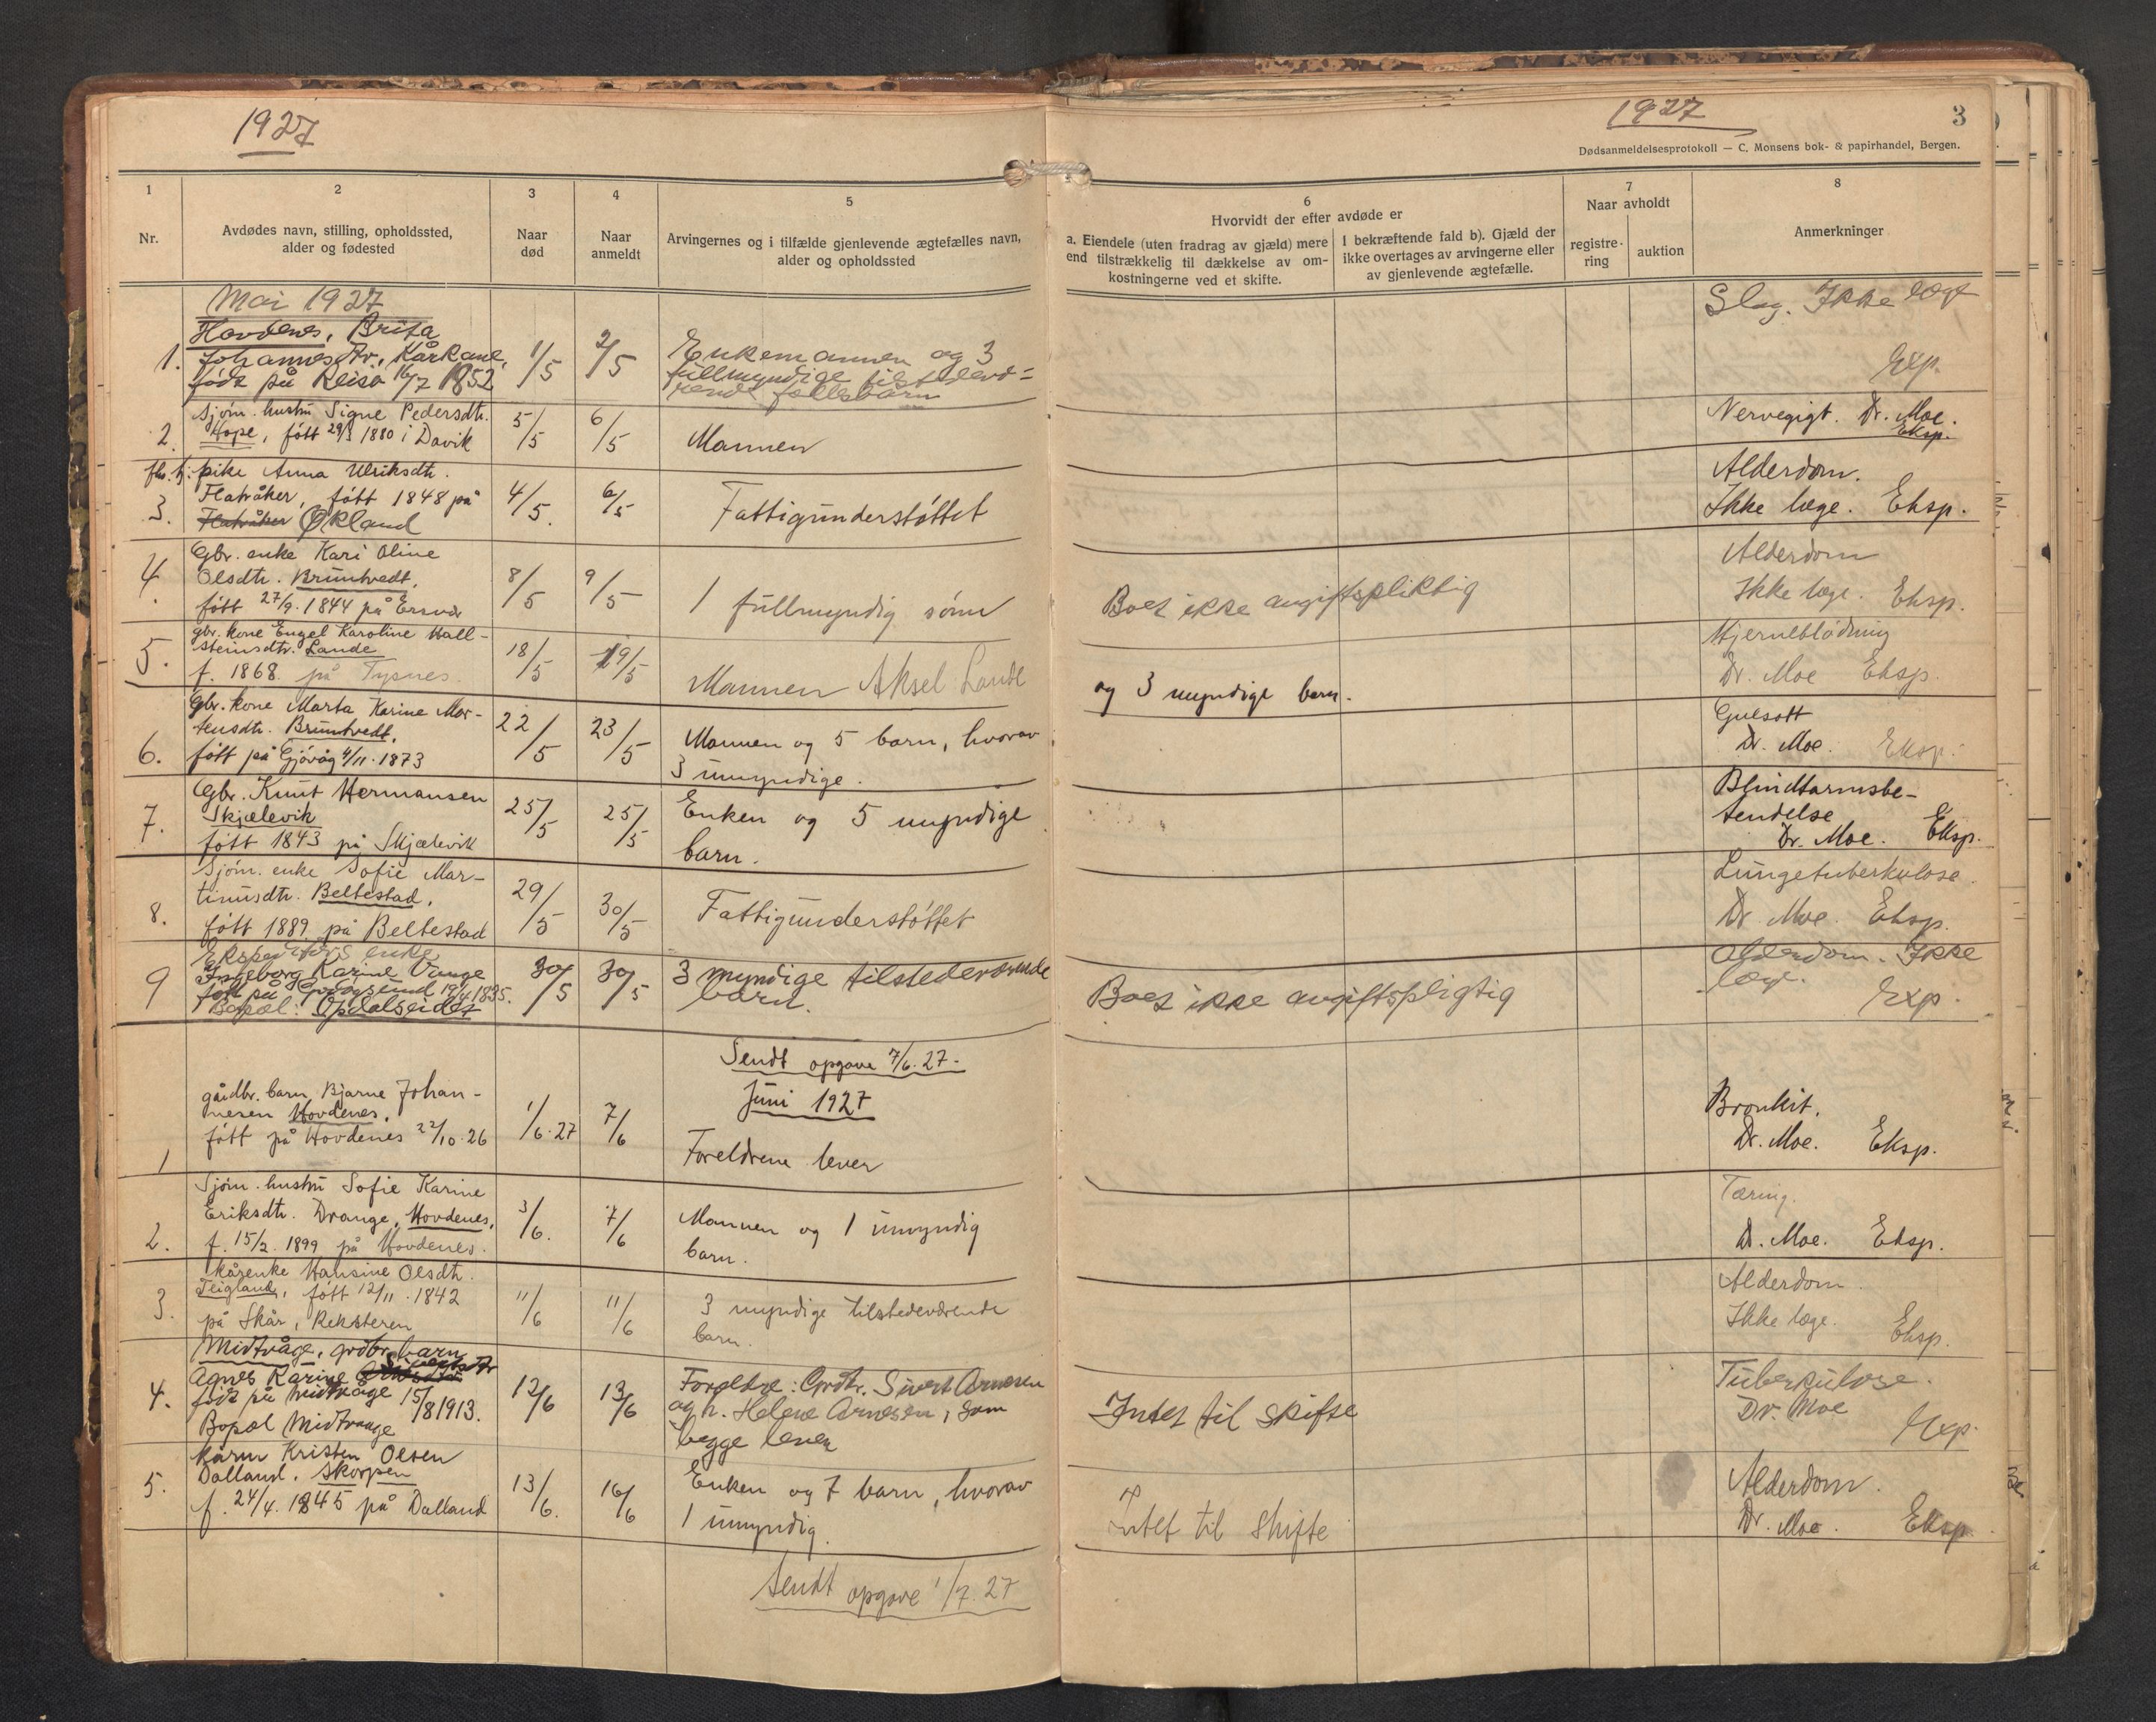 1927
1927
3
Dødsanmeldelsesprotokoll — C. Monsens bok- & papirhandel, Bergen.
1
2
3
4
5
6
7
8
Nr.
Avdødes navn, stilling, opholdssted,
alder og fødested
Naar
død
Naar
anmeldt
Arvingernes og i tilfælde gjenlevende ægtefælles navn,
alder og opholdssted
Hvorvidt der efter avdøde er
a. Eiendele (uten fradrag av gjæld) mere
end tilstrækkelig til dækkelse av om-
kostningerne ved et skifte.
I bekræftende fald b). Gjæld der
ikke overtages av arvingerne eller
av gjenlevende ægtefælle.
Naar avholdt
registre-
ring
auktion
Anmerkninger
Mai 1927
1.
Hovdenes, Brita
Johannesdtr, Kårkone,
født på Reisa 16/7 1852
1/5
2/5
Enkemannen og 3
fullmyndige tilstedevæ-
rende fellesbarn
Slag. Ikke læge
Exp.
2.
Sjøm. hustru Signe Pedersdtr.
Hope, født 29/3 1880 i Davik
5/5
6/5
Mannen
Nervegigt. Dr. Moe.
Eksp.
3.
fhv. tj. pike Anna Ulriksdtr.
Flatråker, født 1848 på
Flatråker Økland
4/5.
6/5
Fattigunderstøttet
Alderdom.
Ikke læge. Eksp.
4.
Gbr. enke Kari Oline
Olsdtr. Bruntvedt,
født 27/9. 1844 på Ersvær
8/5
9/5
1 fullmyndig sønn
Boet ikke avgiftspliktig
Alderdom
Ikke læge. Eksp.
5.
gbr. kone Engel Karoline Hall-
steinsdtr. Lande
f. 1868. på Tysnes.
18/5
19/5
Mannen Aksel Lande
og 3 myndige barn.
Hjerneblødning
Dr. Moe Eksp.
6.
Gbr. kone Marta Karine Mor-
tensdtr. Bruntvedt,
født på Gjøvåg 4/11. 1873
22/5
23/5
Mannen og 5 barn, hvorav
3 umyndige.
Gulsott
Dr. Moe. Eksp.
7.
Gbr. Knut Hermansen
Skjælevik
født 1843 på Skjælevik
25/5
25/5
Enken og 5 myndige
barn.
Blindtarmsbe-
tendelse
Dr. Moe. Eksp.
8.
Sjøm. enke Sofie Mar-
tinusdtr. Beltestad,
født 1889. på Beltestad
29/5
30/5
Fattigunderstøttet
Lungetuberkulose.
Dr. Moe. Eksp.
9
Ekspeditørs enke
Ingeborg Karine Vange
født på Godøysund 19/4 1835.
Bopæl: Opdalseidet
30/5
30/5
3 myndige tilstedeværende
barn.
Boet ikke avgiftspligtig
Alderdom. Ikke
læge.
Exp.
Sendt opgave 7/6. 27.
Juni 1927
1
gårdbr. barn, Bjarne Johan-
nesen Hovdenes,
født på Hovdenes 22/10. 26
1/6. 27
7/6
Foreldrene lever
Bronkit.
Dr. Moe. Eksp.
2.
Sjøm. hustru Sofie Karine
Eriksdtr. Drange, Hovdenes,
f. 15/2. 1899 på Hovdenes.
3/6.
7/6
Mannen og 1 umyndig
barn.
Tæring.
Dr. Moe. Eksp.
3.
Kårenke Hansine Olsdtr.
Teigland, født 12/11. 1842
på Skår, Reksteren
11/6
11/6
3 myndige tilstedeværende
barn.
Alderdom.
Ikke læge.
Eksp.
4.
Midtvåge, grdbr. barn
Agnes Karine Sivertsdtr
født på Midtvåge 15/8 1913.
Bopæl Midtvaage
12/6
13/6
Foreldre: Grdbr. Sivert Arnesen
og h. Helene Arnesen, som
begge lever
Intet til skifte
Tuberkulose.
Dr. Moe
Exp.
5.
kårm Kristen Olsen
Dalland, Skorpen
f. 24/4. 1845 på Dalland
13/6.
16/6
Enken og 7 barn, hvorav
1 umyndig.
Intet til skifte
Alderdom.
Dr. Moe. Eksp.
Sendt opgave 1/7. 27